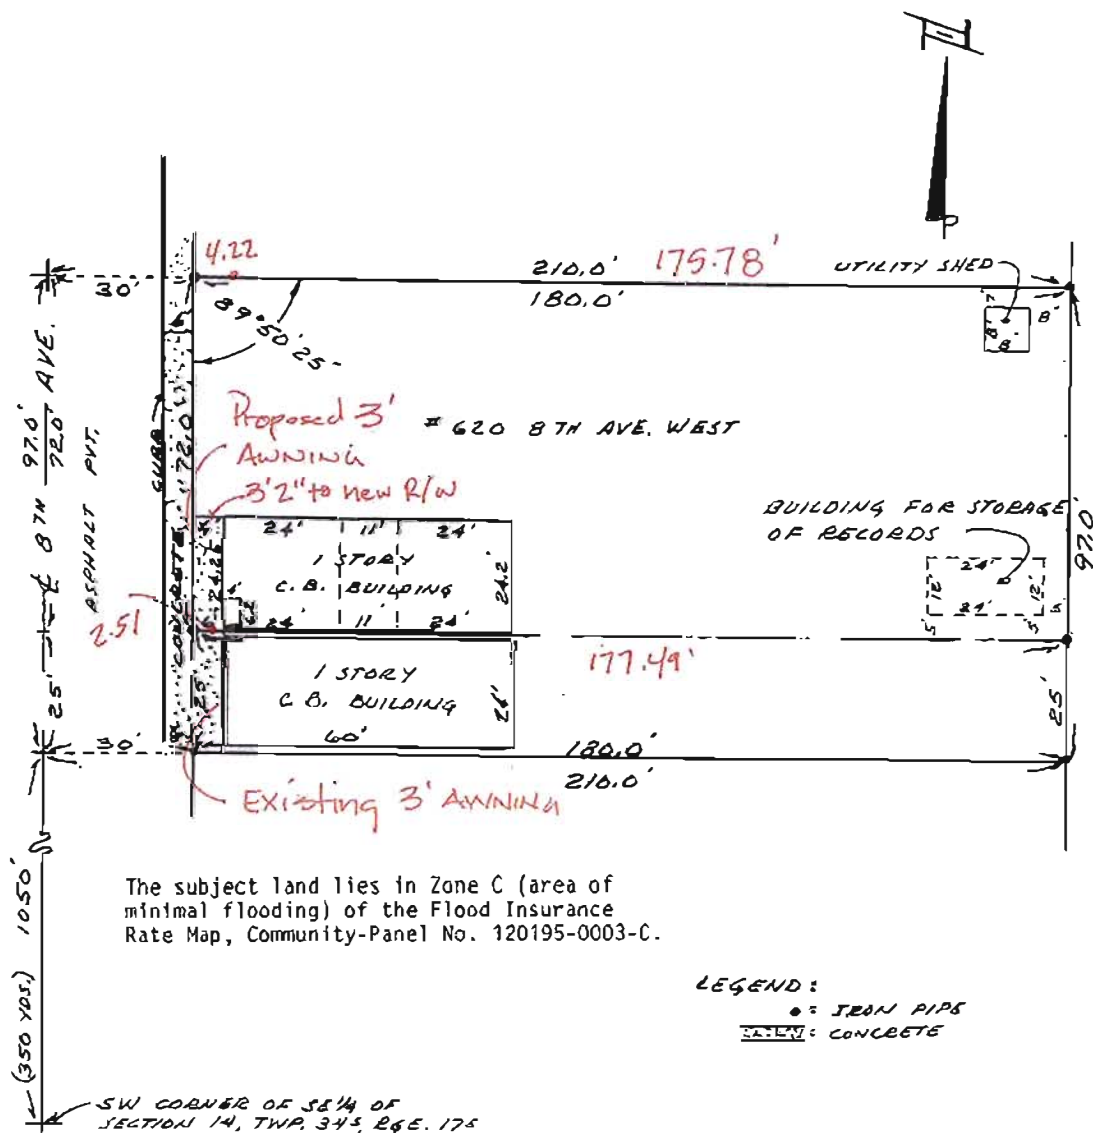 N
4.22
210.0'
175.78'
180.0'
UTILITY SHED
30'
7'
8'
8'
8'
89°50'25"
97.0'
72.0'
℄ 8TH AVE.
ASPHALT PVT.
CURB
CONCRETE
72.0'
Proposed 3'
AWNING
3'2" to new R/W
# 620 8TH AVE. WEST
BUILDING FOR STORAGE
OF RECORDS
24'
12'
12'
24'
5'
5'
97.0'
24' 11' 24'
1 STORY
C.B. BUILDING
24.2'
24.2'
4'
6.2
24' 11' 24'
2.51
177.49'
1 STORY
C.B. BUILDING
25'
25'
25'
60'
30'
180.0'
210.0'
Existing 3' AWNING
1050'
(350 YDS.)
The subject land lies in Zone C (area of
minimal flooding) of the Flood Insurance
Rate Map, Community-Panel No. 120195-0003-C.
LEGEND:
• = IRON PIPE
: CONCRETE
SW CORNER OF SE¼ OF
SECTION 14, TWP. 34S, RGE. 17E